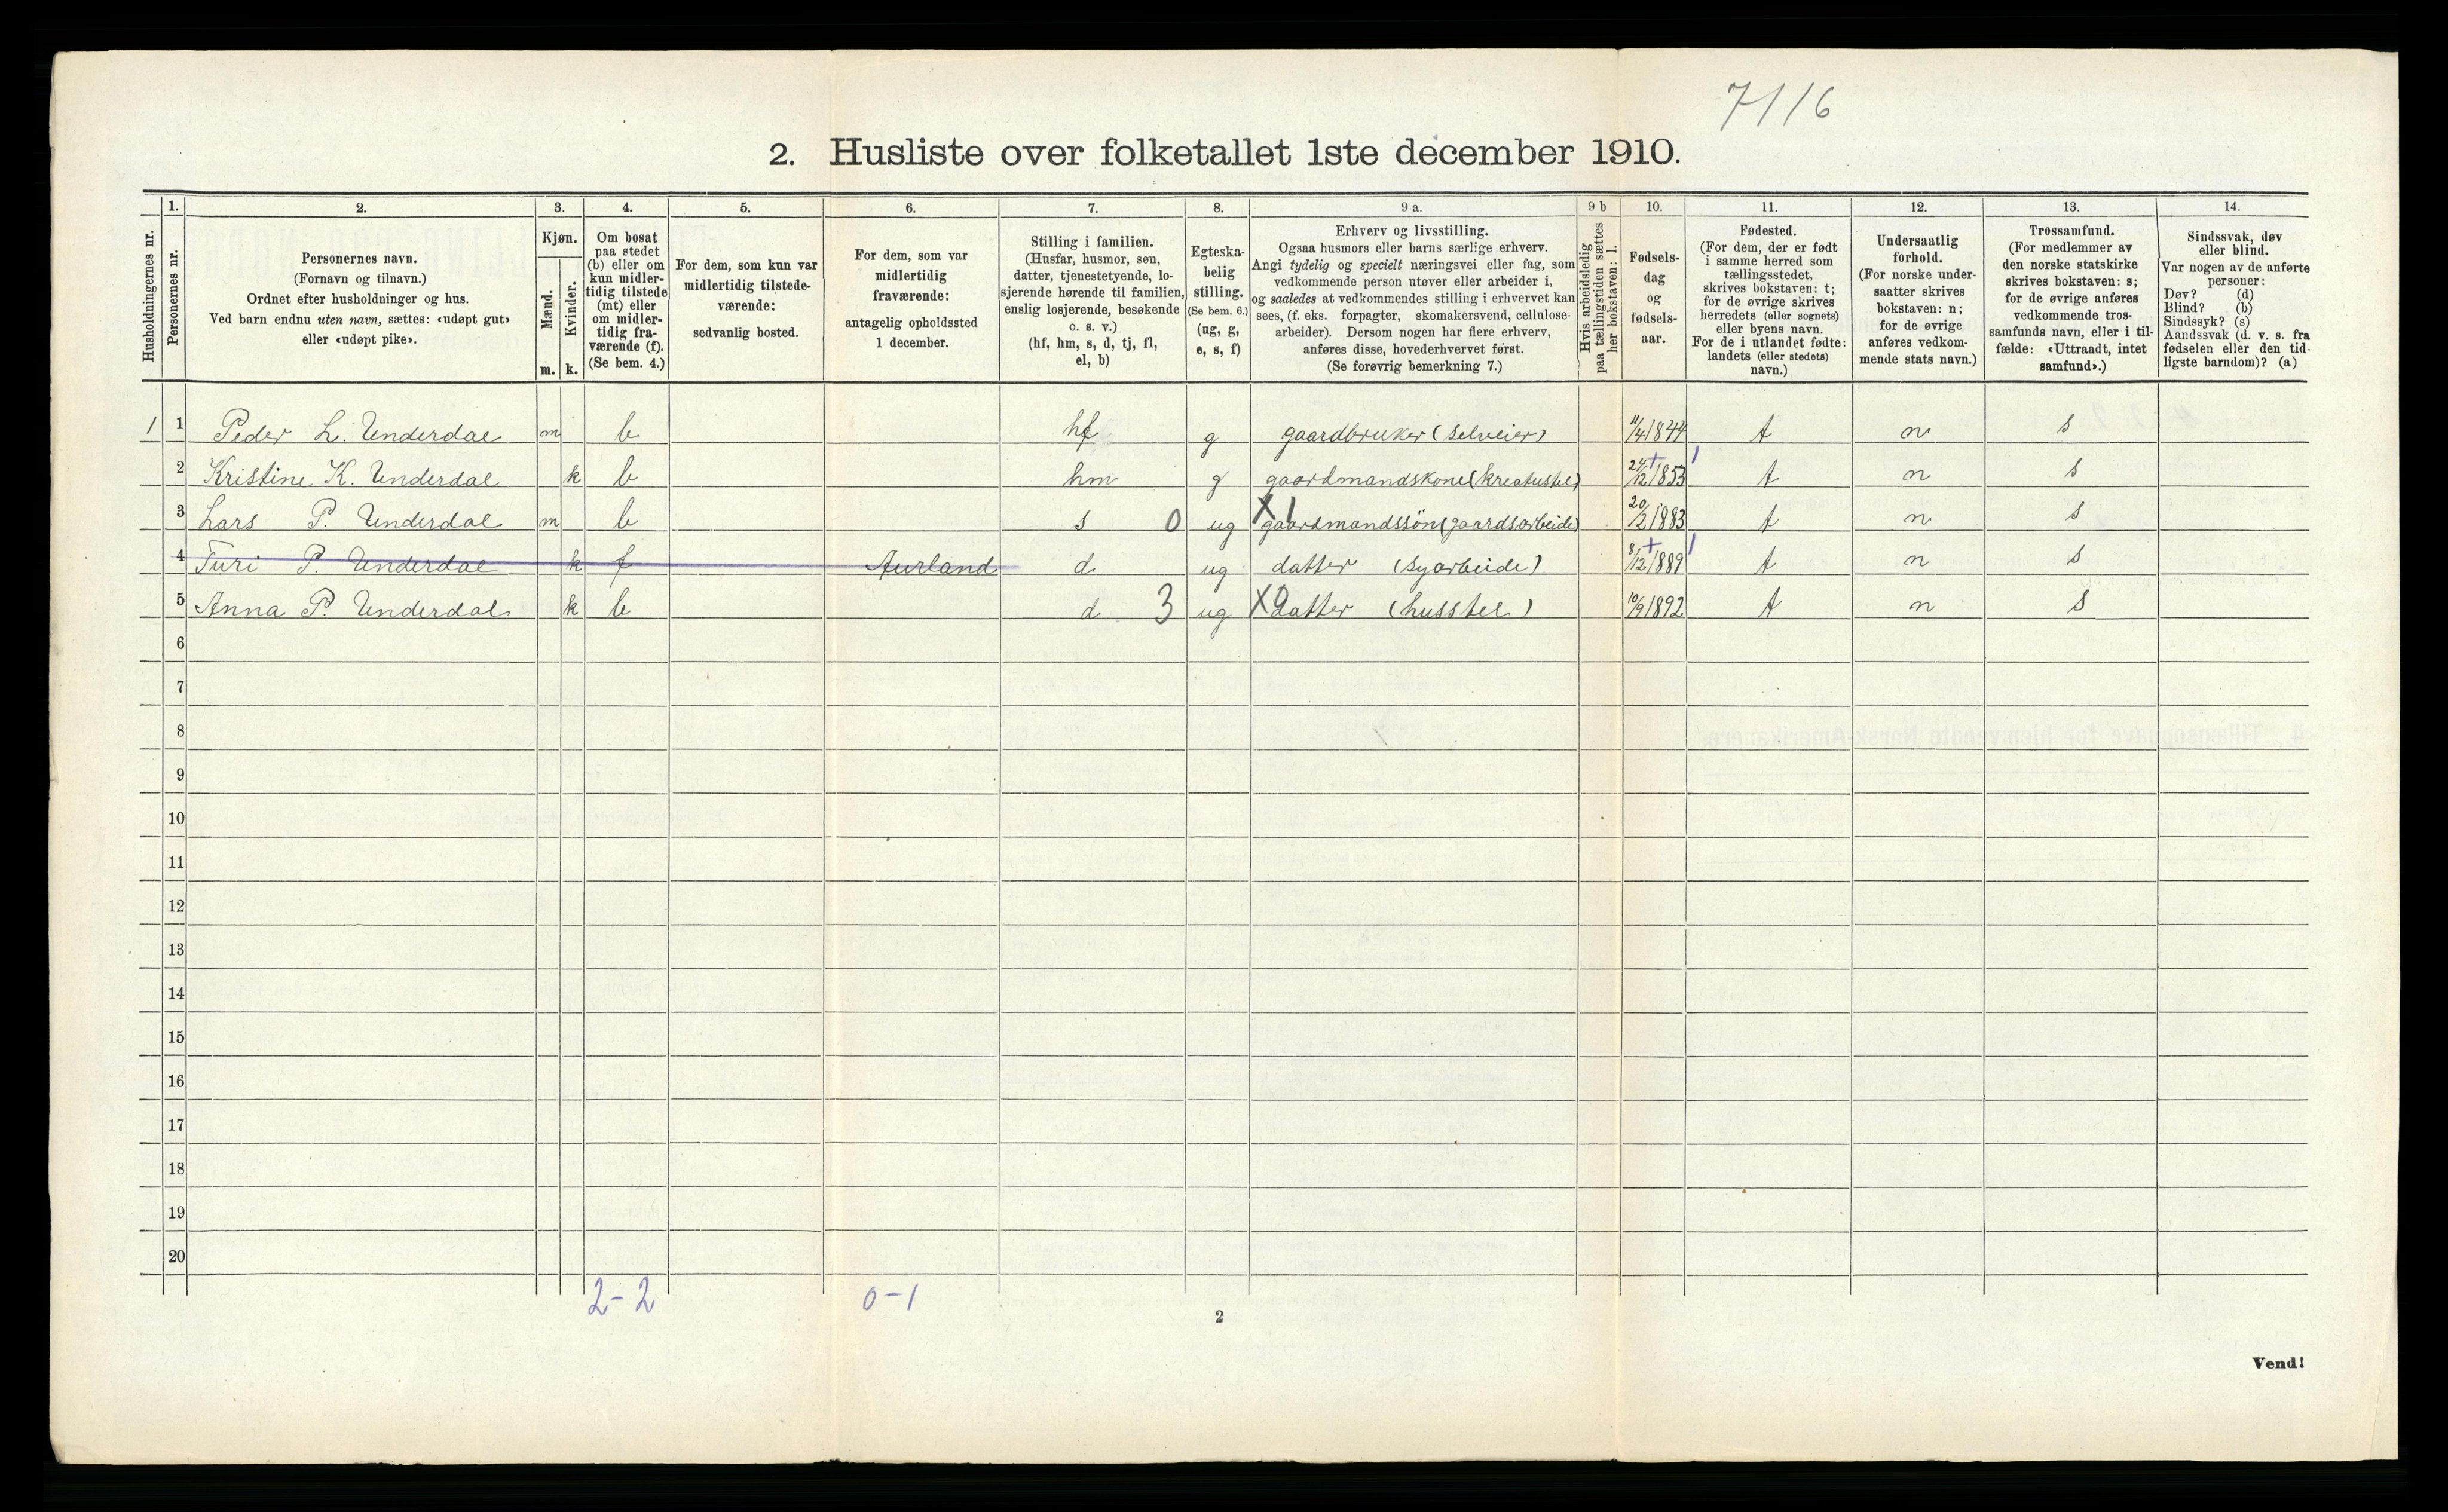 7116
2. Husliste over folketallet 1ste december 1910.
Husholdningernes nr.
1.
Personernes nr.
2.
Personernes navn.
(Fornavn og tilnavn.)
Ordnet efter husholdninger og hus.
Ved barn endnu uten navn, sættes: «udøpt gut»
eller «udøpt pike».
3.
Kjøn.
Mænd.
Kvinder.
m. k.
4.
Om bosat
paa stedet
(b) eller om
kun midler-
tidig tilstede
(mt) eller
om midler-
tidig fra-
værende (f).
(Se bem. 4.)
5.
For dem, som kun var
midlertidig tilstede-
værende:
sedvanlig bosted.
6.
For dem, som var
midlertidig
fraværende:
antagelig opholdssted
1 december.
7.
Stilling i familien.
(Husfar, husmor, søn,
datter, tjenestetyende, lo-
sjerende hørende til familien,
enslig losjerende, besøkende
o. s. v.)
(hf, hm, s, d, tj, fl,
el, b)
8.
Egteska-
belig
stilling.
(Se bem. 6.)
(ug, g,
e, s, f)
9 a.
Erhverv og livsstilling.
Ogsaa husmors eller barns særlige erhverv.
Angi tydelig og specielt næringsvei eller fag, som
vedkommende person utøver eller arbeider i,
og saaledes at vedkommendes stilling i erhvervet kan
sees, (f. eks. forpagter, skomakersvend, cellulose-
arbeider). Dersom nogen har flere erhverv,
anføres disse, hovederhvervet først.
(Se forøvrig bemerkning 7.)
9 b
Hvis arbeidsledig
paa tællingstiden sættes
her bokstaven: l.
10.
Fødsels-
dag
og
fødsels-
aar.
11.
Fødested.
(For dem, der er født
i samme herred som
tællingsstedet,
skrives bokstaven: t;
for de øvrige skrives
herredets (eller sognets)
eller byens navn.
For de i utlandet fødte:
landets (eller stedets)
navn.)
12.
Undersaatlig
forhold.
(For norske under-
saatter skrives
bokstaven: n;
for de øvrige
anføres vedkom-
mende stats navn.)
13.
Trossamfund.
(For medlemmer av
den norske statskirke
skrives bokstaven: s;
for de øvrige anføres
vedkommende tros-
samfunds navn, eller i til-
fælde: «Uttraadt, intet
samfund».)
14.
Sindssvak, døv
eller blind.
Var nogen av de anførte
personer:
Døv? (d)
Blind? (b)
Sindssyk? (s)
Aandssvak (d. v. s. fra
fødselen eller den tid-
ligste barndom)? (a)
1 1 Peder L. Underdal m b hf g gaardbruker (selveier) 11/4 1844 t n s
2 Kristine K. Underdal k b hm g gaardmandskone (kreaturstel) 24/12 1853 t n s
3 Lars P. Underdal m b s 0 ug X1 gaardmandssön (gaardsarbeide) 20/2 1883 t n s
4 Turi P. Underdal k f Aurland d ug datter (syarbeide) 8/12 1889 t n s
5 Anna P. Underdal k b d 3 ug X0 datter (husstel) 10/9 1892 t n s
6
7
8
9
10
11
12
13
14
15
16
17
18
19
20
2-2 0-1
2
Vend!